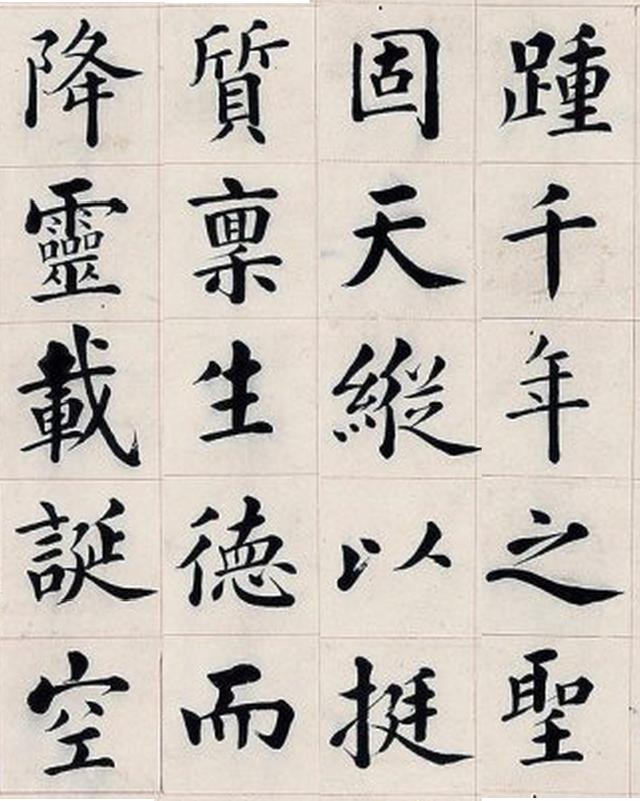 踵千年之聖
固天縱以挺
質稟生德而
降靈載誕空